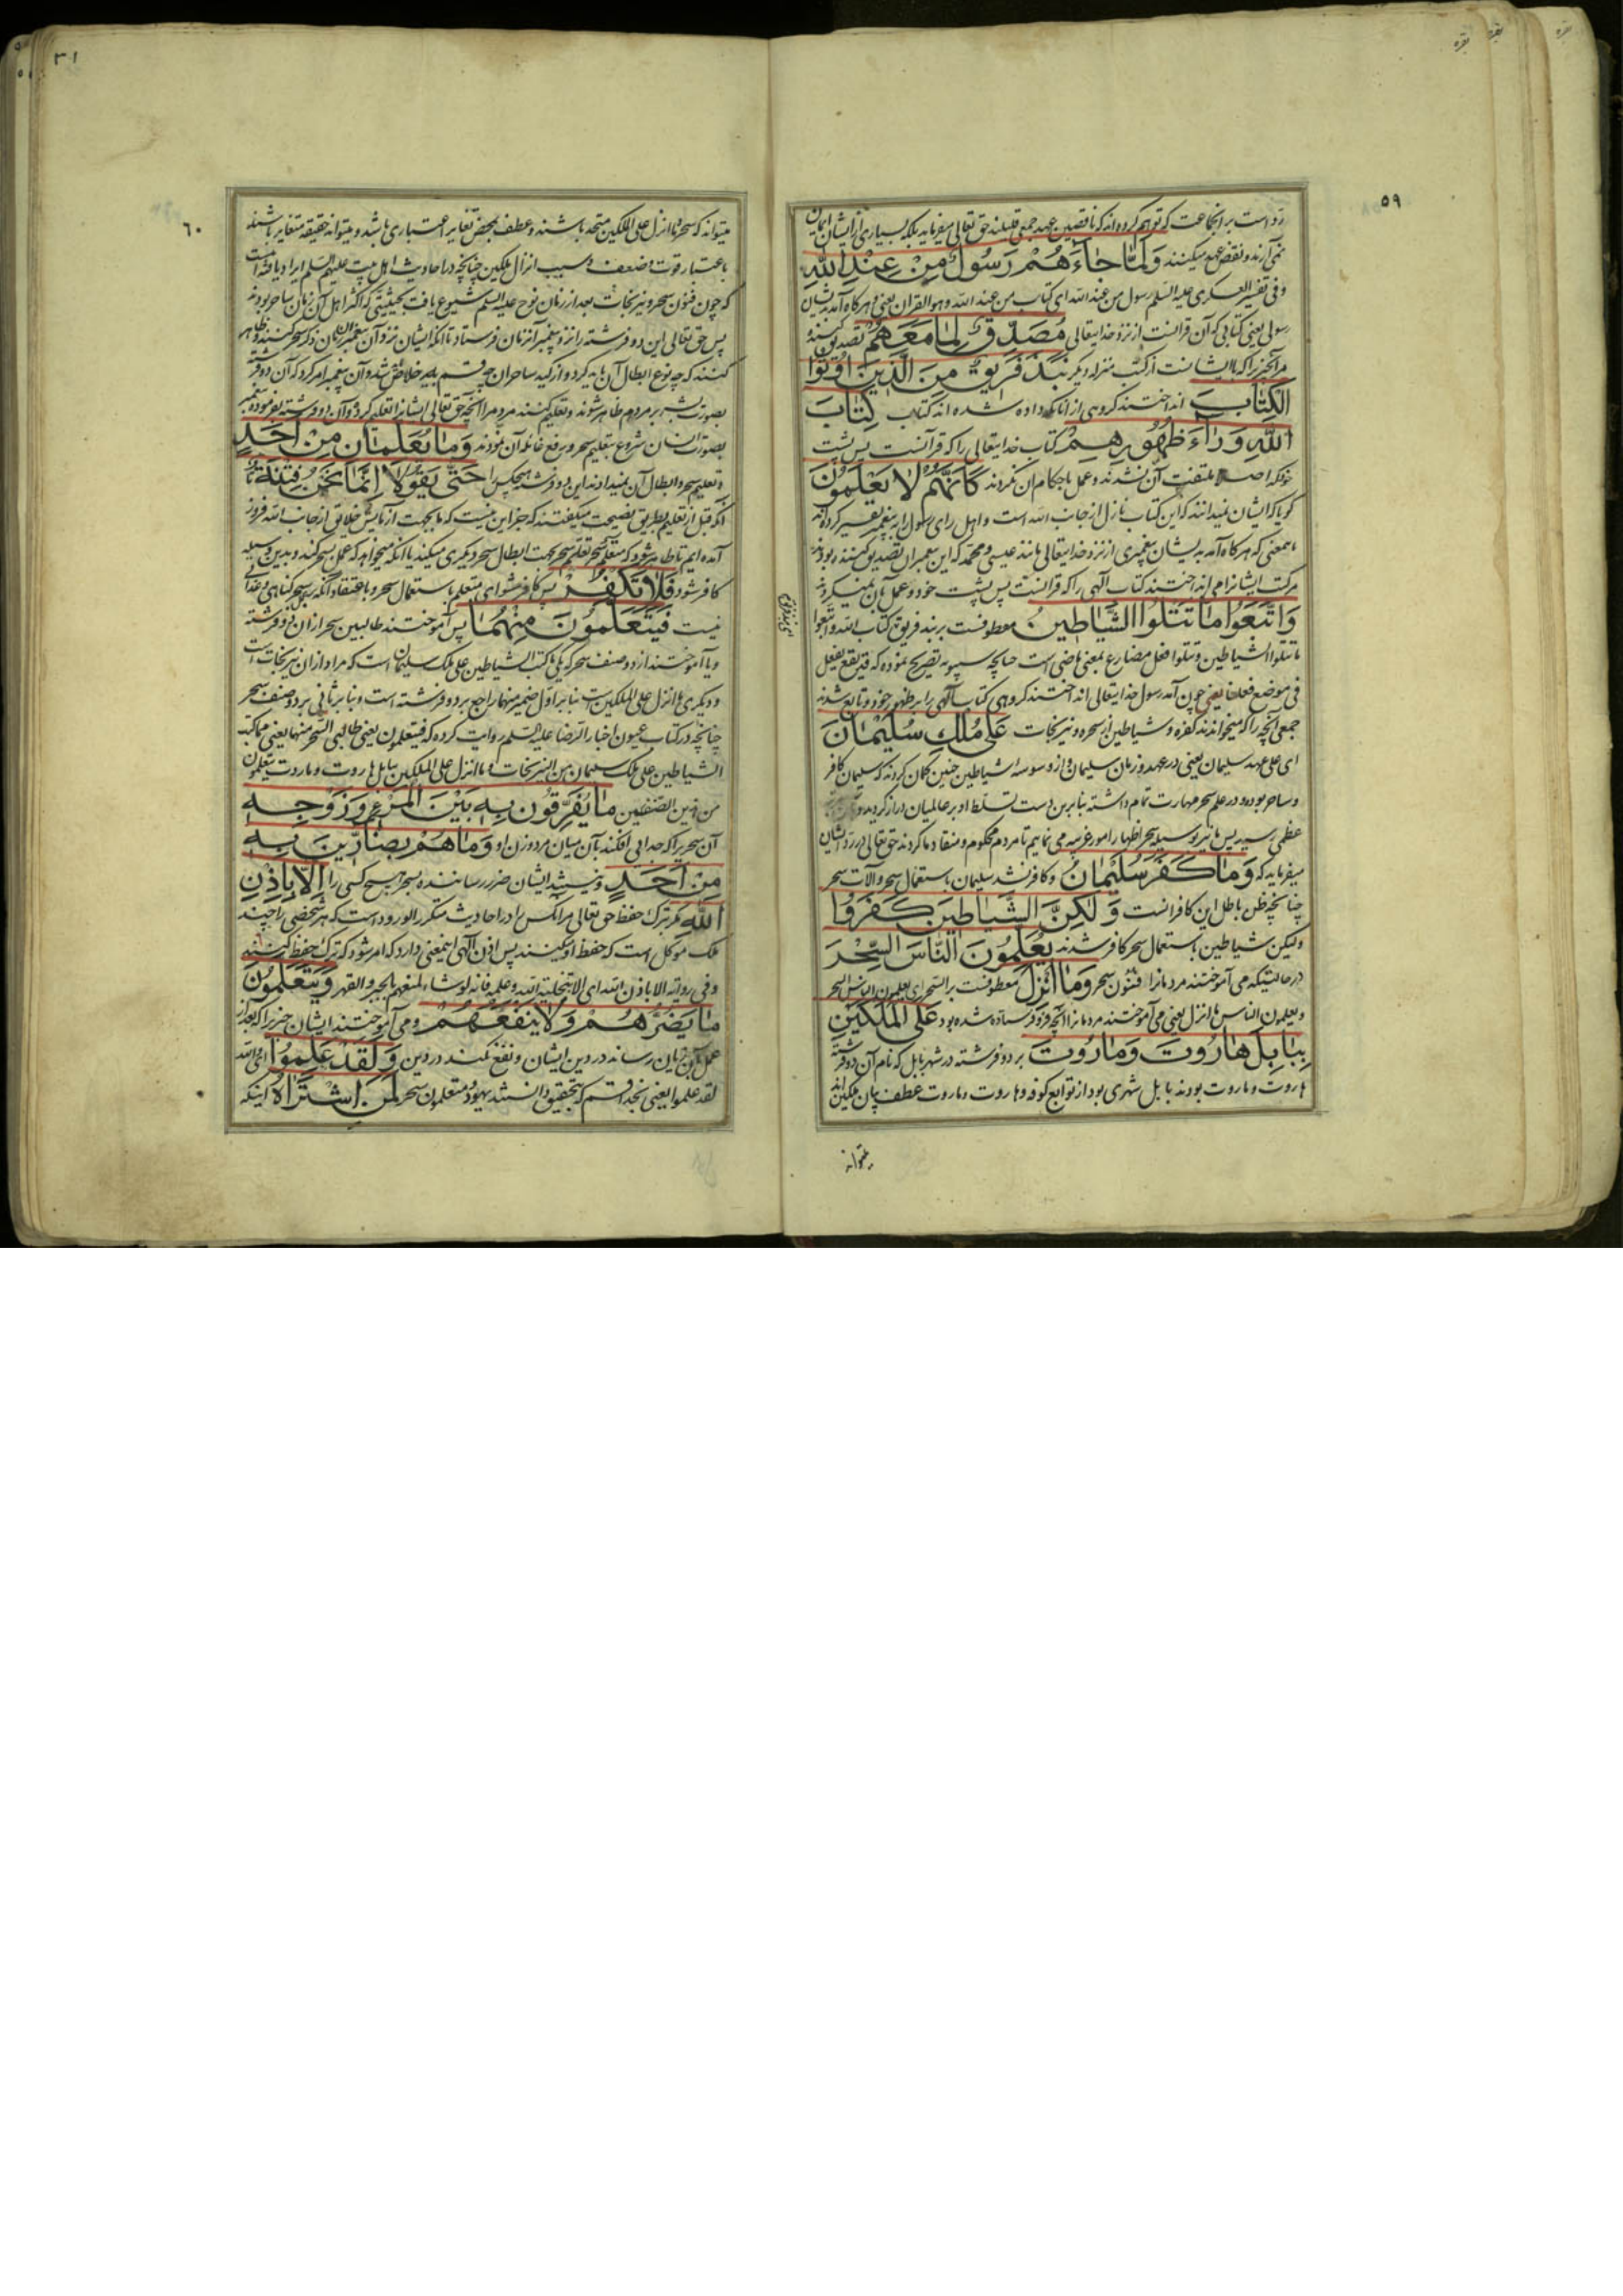 ٥٩
رد است بر انجماعت که توهم کرده اند که ناقضین عهد جمعی قلیلند حق تعالی میفرماید بلکه بسیاری از ایشان ایمان
نمی آرند و نقض عهد میکنند وَلَمَّا جَاءَهُمْ رَسُولٌ مِنْ عِنْدِ اللهِ
وفی تفسیر العسکری علیه السلم رسول من عند الله ای کتاب من عند الله وهو القران یعنی و هرگاه آمد بدیشان
رسولی یعنی کتابی که آن قرانست از نزد خدایتعالی مُصَدِّقٌ لِمَا مَعَهُمْ تصدیق کننده
مر آنچیز را که با ایشانست از کتب منزله دیگر نَبَذَ فَرِیقٌ مِنَ الَّذِینَ اُوتُوا
الْکِتَابَ انداختند کروهی از آنانکه داده شده اند کتاب کِتَابَ
اللهِ وَرَاءَ ظُهُورِهِمْ کتاب خدایتعالی را که قرآنست پس پشت
خود که اصلا ملتفت آن نشدند و عمل باحکام ان نکردند کَاَنَّهُمْ لَا یَعْلَمُونَ
کویا که ایشان نمیدانند که این کتاب نازل از جانب الله است و اهل رای رسول را به پیغمبر تفسیر کرده اند
بامعنی که هرگاه آمد بدیشان پیغمبری از نزد خدایتعالی مانند عیسی و محمد که این پیغمبران تصدیق کننده بودند
مر کتب ایشانرا می انداختند کتاب الهی را که قرانست پس پشت خود و عمل بآن نمیکردند
وَاتَّبَعُوا مَا تَتْلُوا الشَّیَاطِینُ معطوفست بر نبذ فریق کتاب الله و اتبعوا
ما تتلوا الشیاطین و تتلوا فعل مضارع بمعنی ماضی است چنانچه سیبویه تصریح نموده که قد یقع یفعل
فی موضع فعل یعنی چون آمد رسول خدایتعالی انداختند کروهی کتاب الهی را بر ظهور خود و تابع شدند
جمعی انچه را که میخواندند کفره و شیاطین از سحره و نیرنجات عَلَی مُلْکِ سُلَیْمَانَ
ای علی عهد سلیمان یعنی در عهد و زمان سلیمان و از وسوسه شیاطین چنین کمان کردند که سلیمان کافر
و ساحر بوده و در علم سحر مهارت تمام داشته بنابرین دست تسلط او بر عالمیان دراز کردید و
عظمی رسید پس ما نیز بوسیله سحر اظهار امور غریبه می نمائیم تا مردم محکوم و منقاد ما کردند حق تعالی در رد ایشان
میفرماید که وَمَا کَفَرَ سُلَیْمَانُ و کافر نشد سلیمان باستعمال سحر و آلات سحر
چنانچه ظن باطل این کافرانست وَلَکِنَّ الشَّیَاطِینَ کَفَرُوا
ولیکن شیاطین باستعمال سحر کافر شدند یُعَلِّمُونَ النَّاسَ السِّحْرَ
در حالتیکه می آموختند مردمانرا فنون سحر وَمَا اُنْزِلَ معطوفست بر السحر ای یعلمون الناس السحر
و یعلمون الناس ما انزل یعنی می آموختند مردمانرا انچه فرو فرستاده شده بود عَلَی الْمَلَکَیْنِ
بِبَابِلَ هَارُوتَ وَمَارُوتَ بر دو فرشته در شهر بابل که نام آن دو فرشته
هاروت و ماروت بودند بابل شهری بود از توابع کوفه و هاروت و ماروت عطف بیان ملکین اند
میتواند
٣١
٦٠
میتواند که سحر و ما انزل علی الملکین متحد باشند و عطف بمحض تغایر اعتباری باشد و میتواند حقیقة متغایر باشند
باعتبار قوت و ضعف و سبب انزال ملکین چنانچه در احادیث اهل بیت علیهم السلم ایراد یافته است
که چون فنون سحر و نیرنجات بعد از زمان نوح علیه السلم شیوع یافت بحیثیتی که اکثر اهل آن زمان ساحر بودند
پس حق تعالی این دو فرشته را نزد پیغمبر آنزمان فرستاد تا انکه ایشان نزد آن پیغمبر زمان ذکر سحر کنند و ظاهر
کنند که چه نوع ابطال آن باید کرد و از کید ساحران چه قسم باید خلاص شد و آن پیغمبر امر کرد که آن دو فرشته
بصورت بشر بر مردم ظاهر شوند و تعلیم کنند مردم را انچه حق تعالی ایشانرا تعلیم کرده و آن دو فرشته بفرموده پیغمبر
بصورت انسان شروع بتعلیم سحر و رفع غائله آن نمودند وَمَا یُعَلِّمَانِ مِنْ اَحَدٍ
و تعلیم سحر و ابطال آن نمیدادند این دو فرشته هیچکس را حَتَّی یَقُولَا اِنَّمَا نَحْنُ فِتْنَةٌ تا
انکه قبل از تعلیم بطریق نصیحت میگفتند که جز این نیست که ما بجهت آزمایش خلایق از جانب الله فرود
آمده ایم تا ظاهر شود که متعلم سحر تعلم سحر بجهت ابطال سحر دیگری میکند یا انکه میخواهد که عمل بسحر کند و بدین وسیله
کافر شود فَلَا تَکْفُرْ پس کافر مشو ای متعلم باستعمال سحر و باعتقاد انکه بسحر کناهی و عذابی
نیست فَیَتَعَلَّمُونَ مِنْهُمَا پس آموختند طالبین سحر از ان دو فرشته
و یا آموختند از دو صنف سحر که یکی ما کتب الشیاطین علی ملک سلیمان است که مراد از ان نیرنجات است
و دیگری ما انزل علی الملکین است بنابر اول ضمیر منهما راجع بر دو فرشته است و بنا بر ثانی بر دو صنف سحر
چنانچه در کتاب عیون اخبار الرضا علیه السلم روایت کرده که فیتعلمون یعنی طالبی السحر منهما یعنی مما کتبت
الشیاطین علی ملک سلیمان من النیرنجات و ما انزل علی الملکین ببابل هاروت و ماروت یتعلمون
من هذین الصنفین مَا یُفَرِّقُونَ بِهِ بَیْنَ الْمَرْءِ وَزَوْجِهِ
آن سحر را که جدائی افکنند بآن میان مرد و زن او وَمَا هُمْ بِضَارِّینَ بِهِ
مِنْ اَحَدٍ و نیستند ایشان ضرر رساننده بسحر هیچ کسی را اِلَّا بِاِذْنِ
اللهِ مکر بترک حفظ حق تعالی مر انکس را در احادیث متکرر الورود است که هر شخصی را چند
ملک موکل است که حفظ او میکنند پس اذن الهی اینمعنی دارد که امر شود که ترک حفظ کنند
وفی روایة الا باذن الله ای الا بتخلیة الله و علمه فانه لو شاء لمنعهم بالجبر والقهر وَیَتَعَلَّمُونَ
مَا یَضُرُّهُمْ وَلَا یَنْفَعُهُمْ و می آموختند ایشان چیزیرا که بعد از
عمل بآن زیان رساند در دین ایشان و نفع نکند در دین وَلَقَدْ عَلِمُوا ای والله
لقد علموا یعنی بخدا قسم که بتحقیق دانستند یهود و متعلمون سحر لَمَنِ اشْتَرَاهُ اینکه